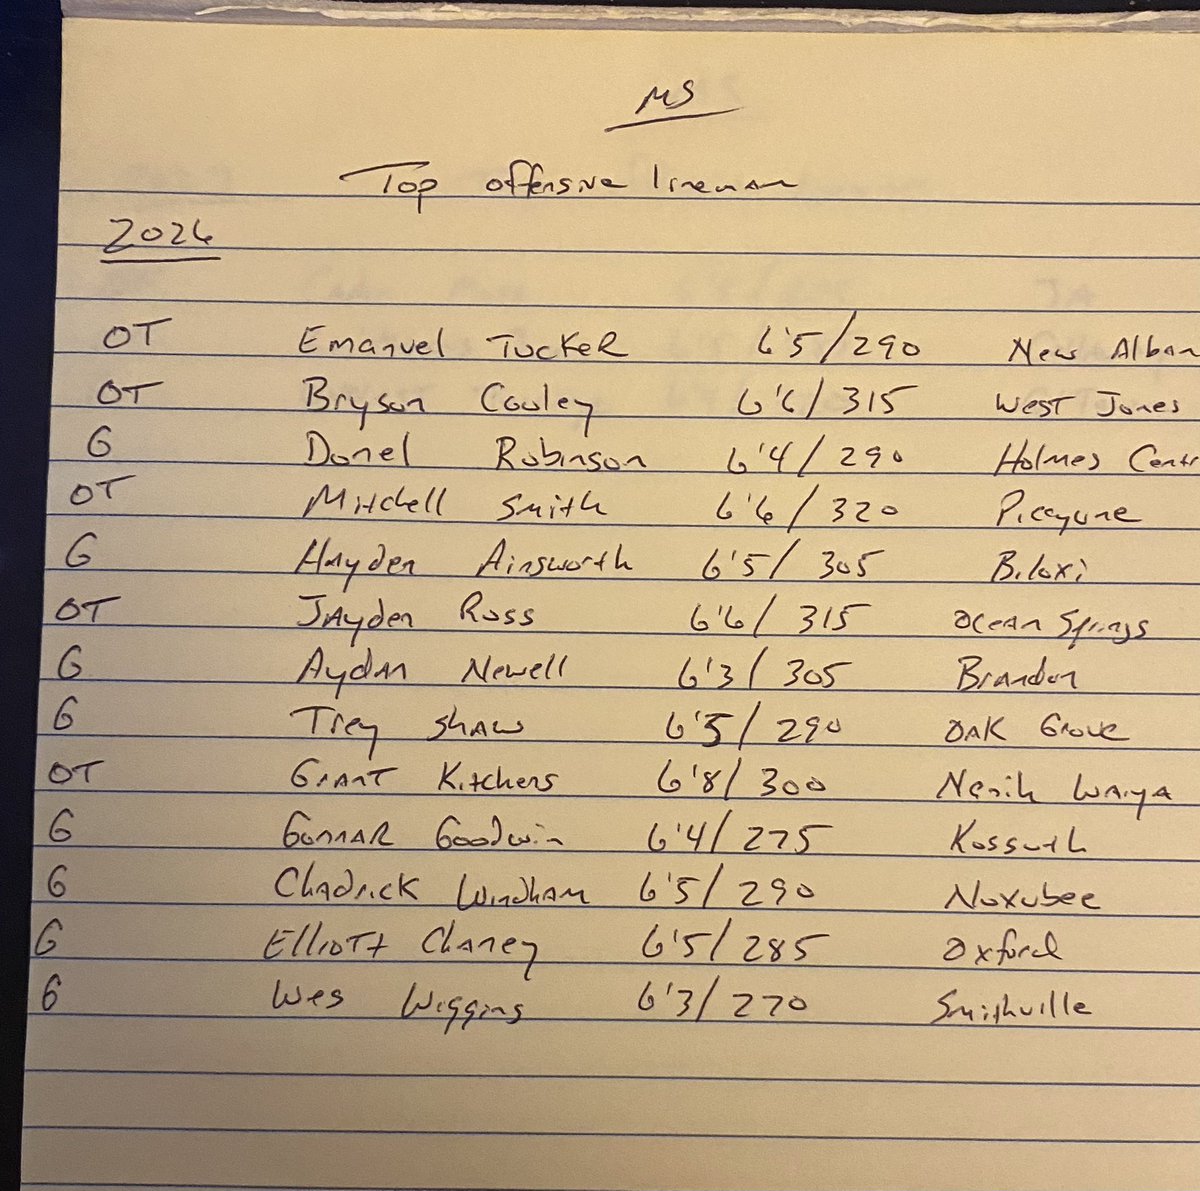 MS
Top offensive lineman
2026
OT Emanuel Tucker 6'5/290 New Alban
OT Bryson Cooley 6'6/315 West Jones
G Donel Robinson 6'4/290 Holmes Centr
OT Mitchell Smith 6'6/320 Picayune
G Hayden Ainsworth 6'5/305 Biloxi
OT Jayden Ross 6'6/315 Ocean Springs
G Aydan Newell 6'3/305 Brandon
G Trey Shaw 6'5/290 Oak Grove
OT Grant Kitchens 6'8/300 Waiya
G Gunnar Goodwin 6'4/275 Kossuth
G Chadrick Windham 6'5/290 Noxubee
G Elliott Chaney 6'5/285 Oxford
G Wes Wiggins 6'3/270 Smithville